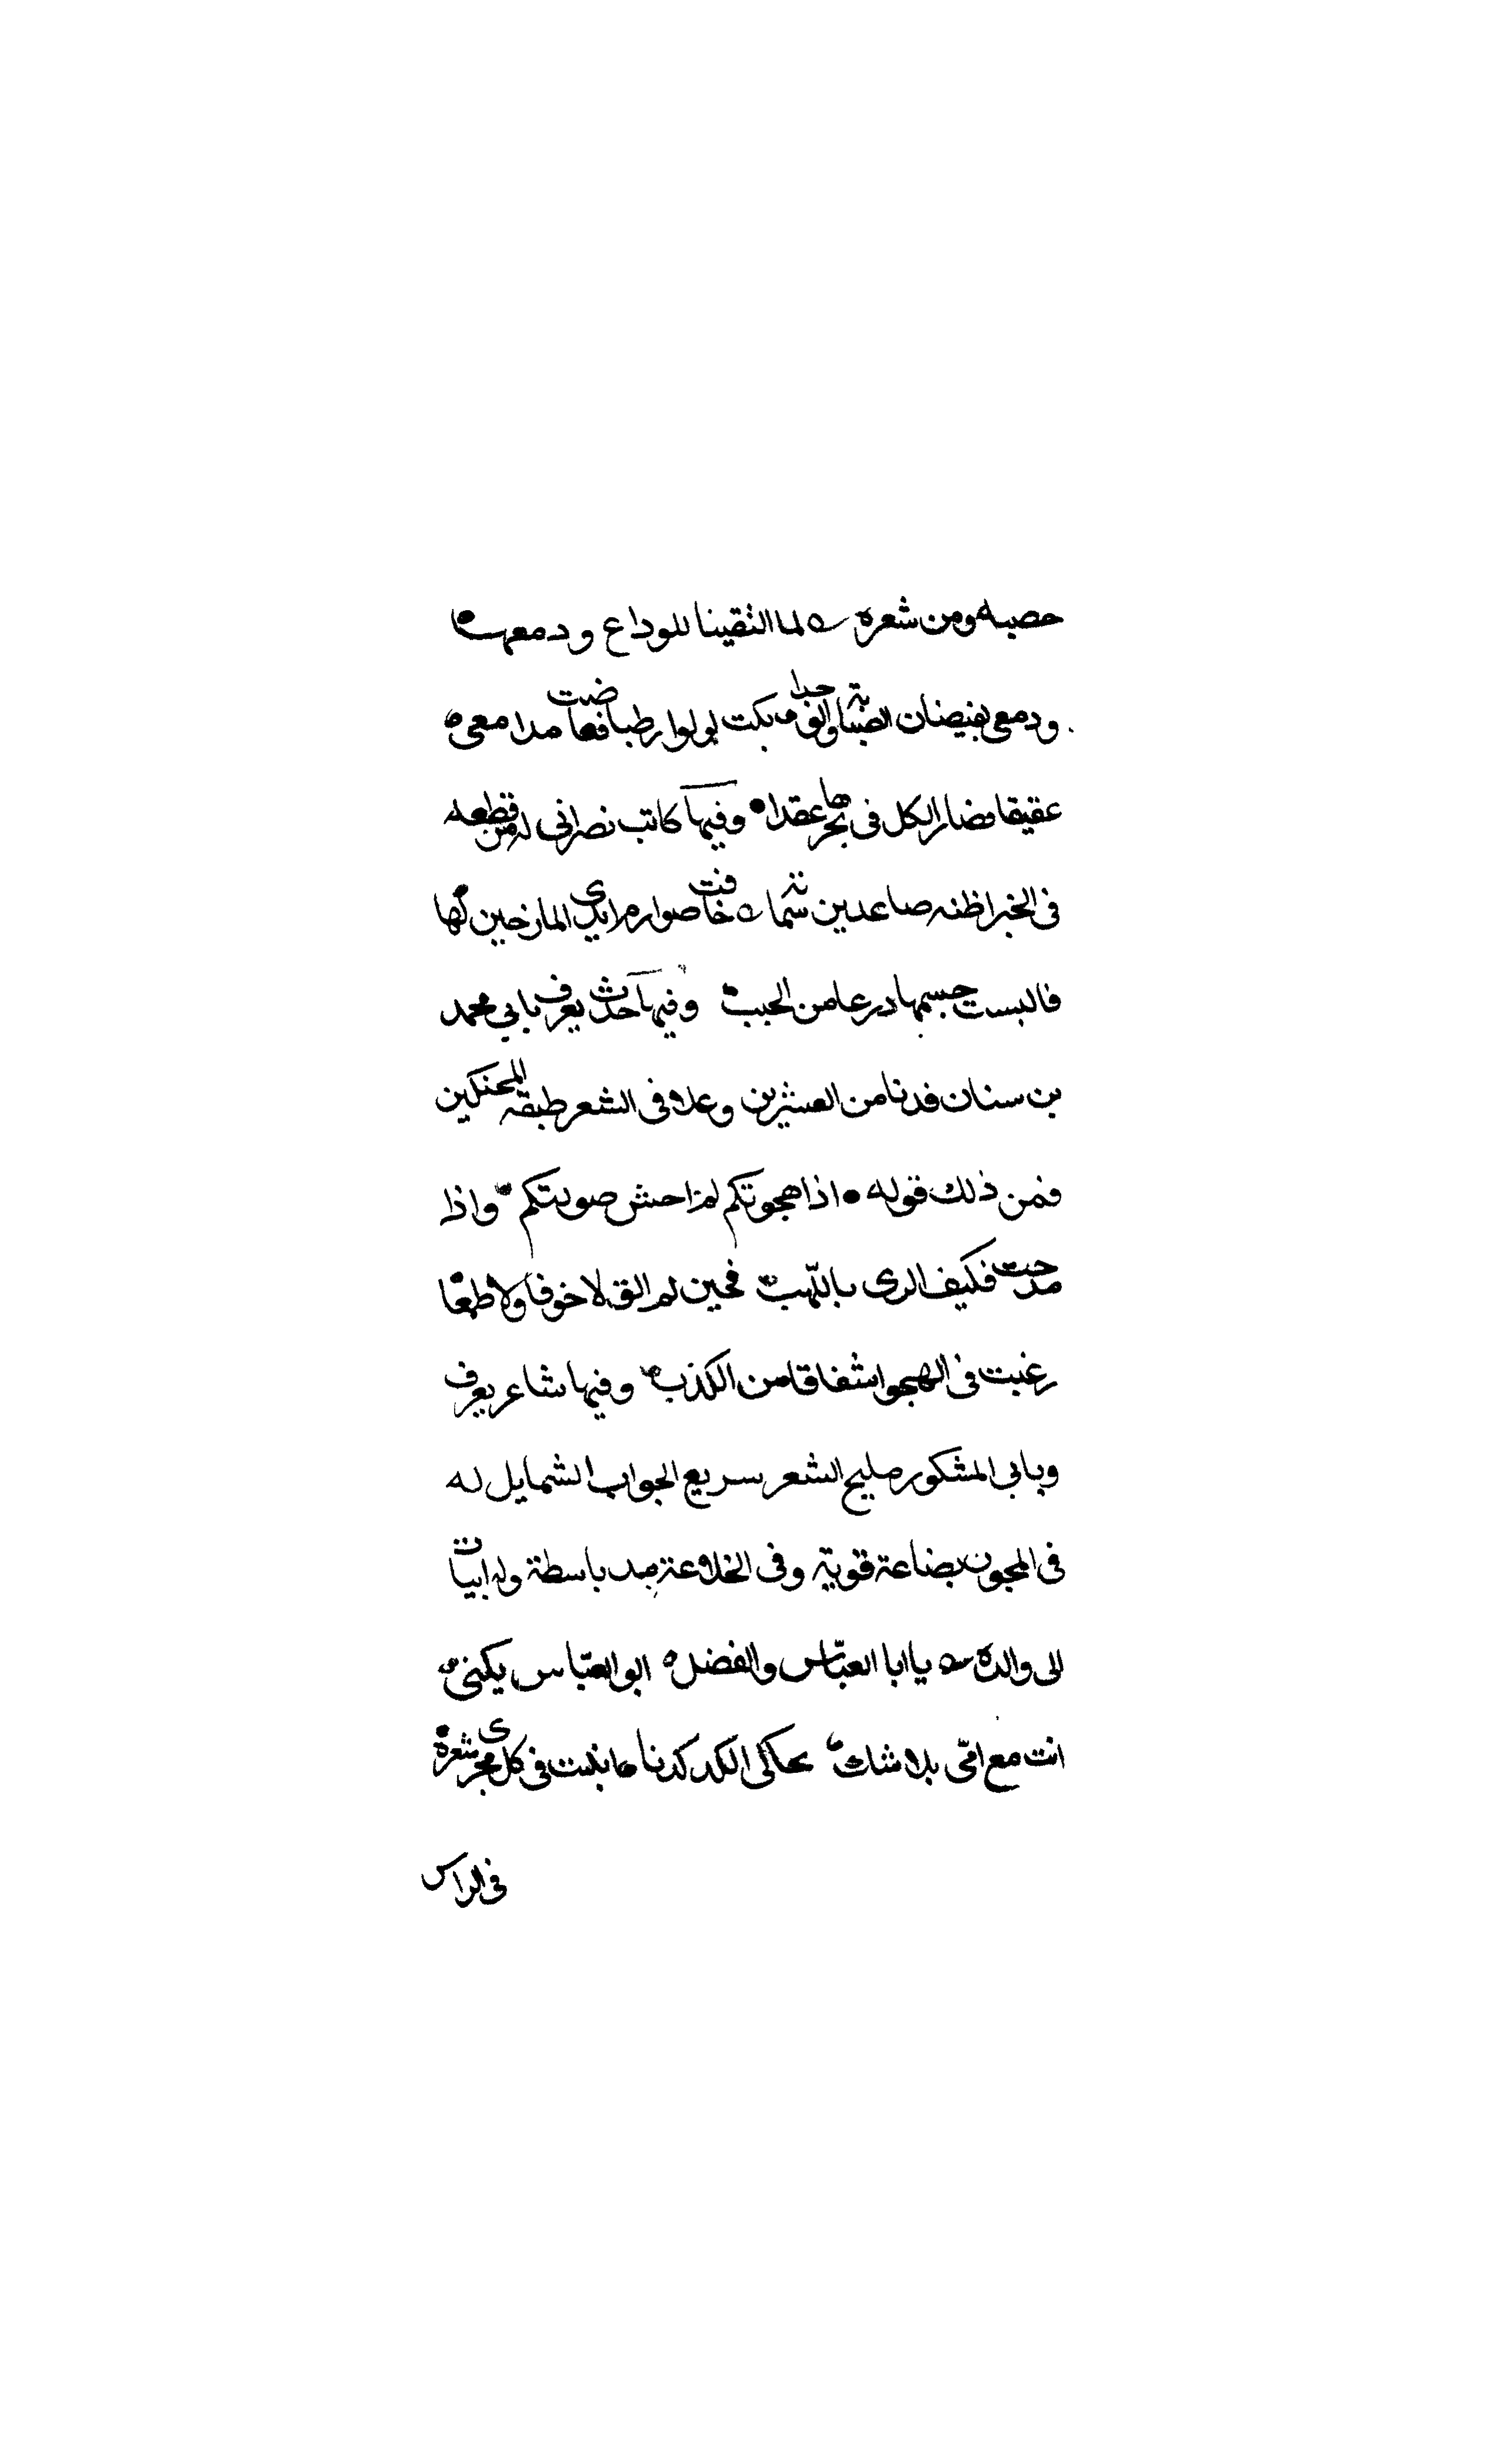 حصبه ومن شعره لما التقينا للوداع ودمعها
ودمعي يفيضان الصبابة والوجدا بكت لولوا رطبا ففاضت مدامعي
عقيقا فصار الكل في نحرها عقدا وفيها كاتب نصراني له من قطعه
في الخمر اظنه صاعد بن شماته خافت صوارم ايدي المازجين لها
فالبست جسمها درعا من الحبب وفيها حدث يعرف بابي محمد
بن سنان قد نا من العشرين وعلا في الشعر طبقة المحنكين
فمن ذلك قوله اذا هجوتكم لم اخش صولتكم واذا
مدحت فكيف الرى باللهب فحين لم الق لا خوفا ولا طمعا
رغبت في الهجو اشفاقا من الكذب وفيها شاعر يعرف
وبابي المشكور مليح الشعر سريع الجواب الشمايل له
في المجون بضاعة قوية وفي الخلاعة يد باسطة وله ابيات
الى والده يا ابا العباس والفضل ابو العباس يكنى
انت مع امي بلا شك الكركدنا نبتت في كل مجرى شعرة
في الراس